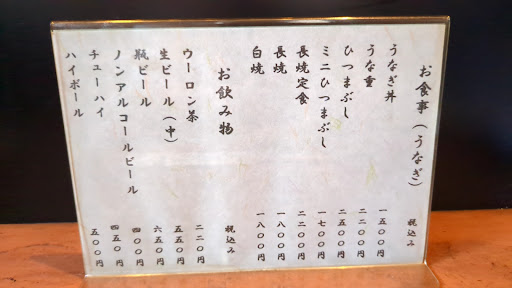 お食事（うなぎ） 税込み
うなぎ丼 一五〇〇円
うな重 二二〇〇円
ひつまぶし 二五〇〇円
ミニひつまぶし 一七〇〇円
長焼定食 二二〇〇円
長焼 一八〇〇円
白焼 一八〇〇円
お飲み物 税込み
ウーロン茶 二二〇円
生ビール（中） 五五〇円
瓶ビール 六五〇円
ノンアルコールビール 四〇〇円
チューハイ 四五〇円
ハイボール 五〇〇円